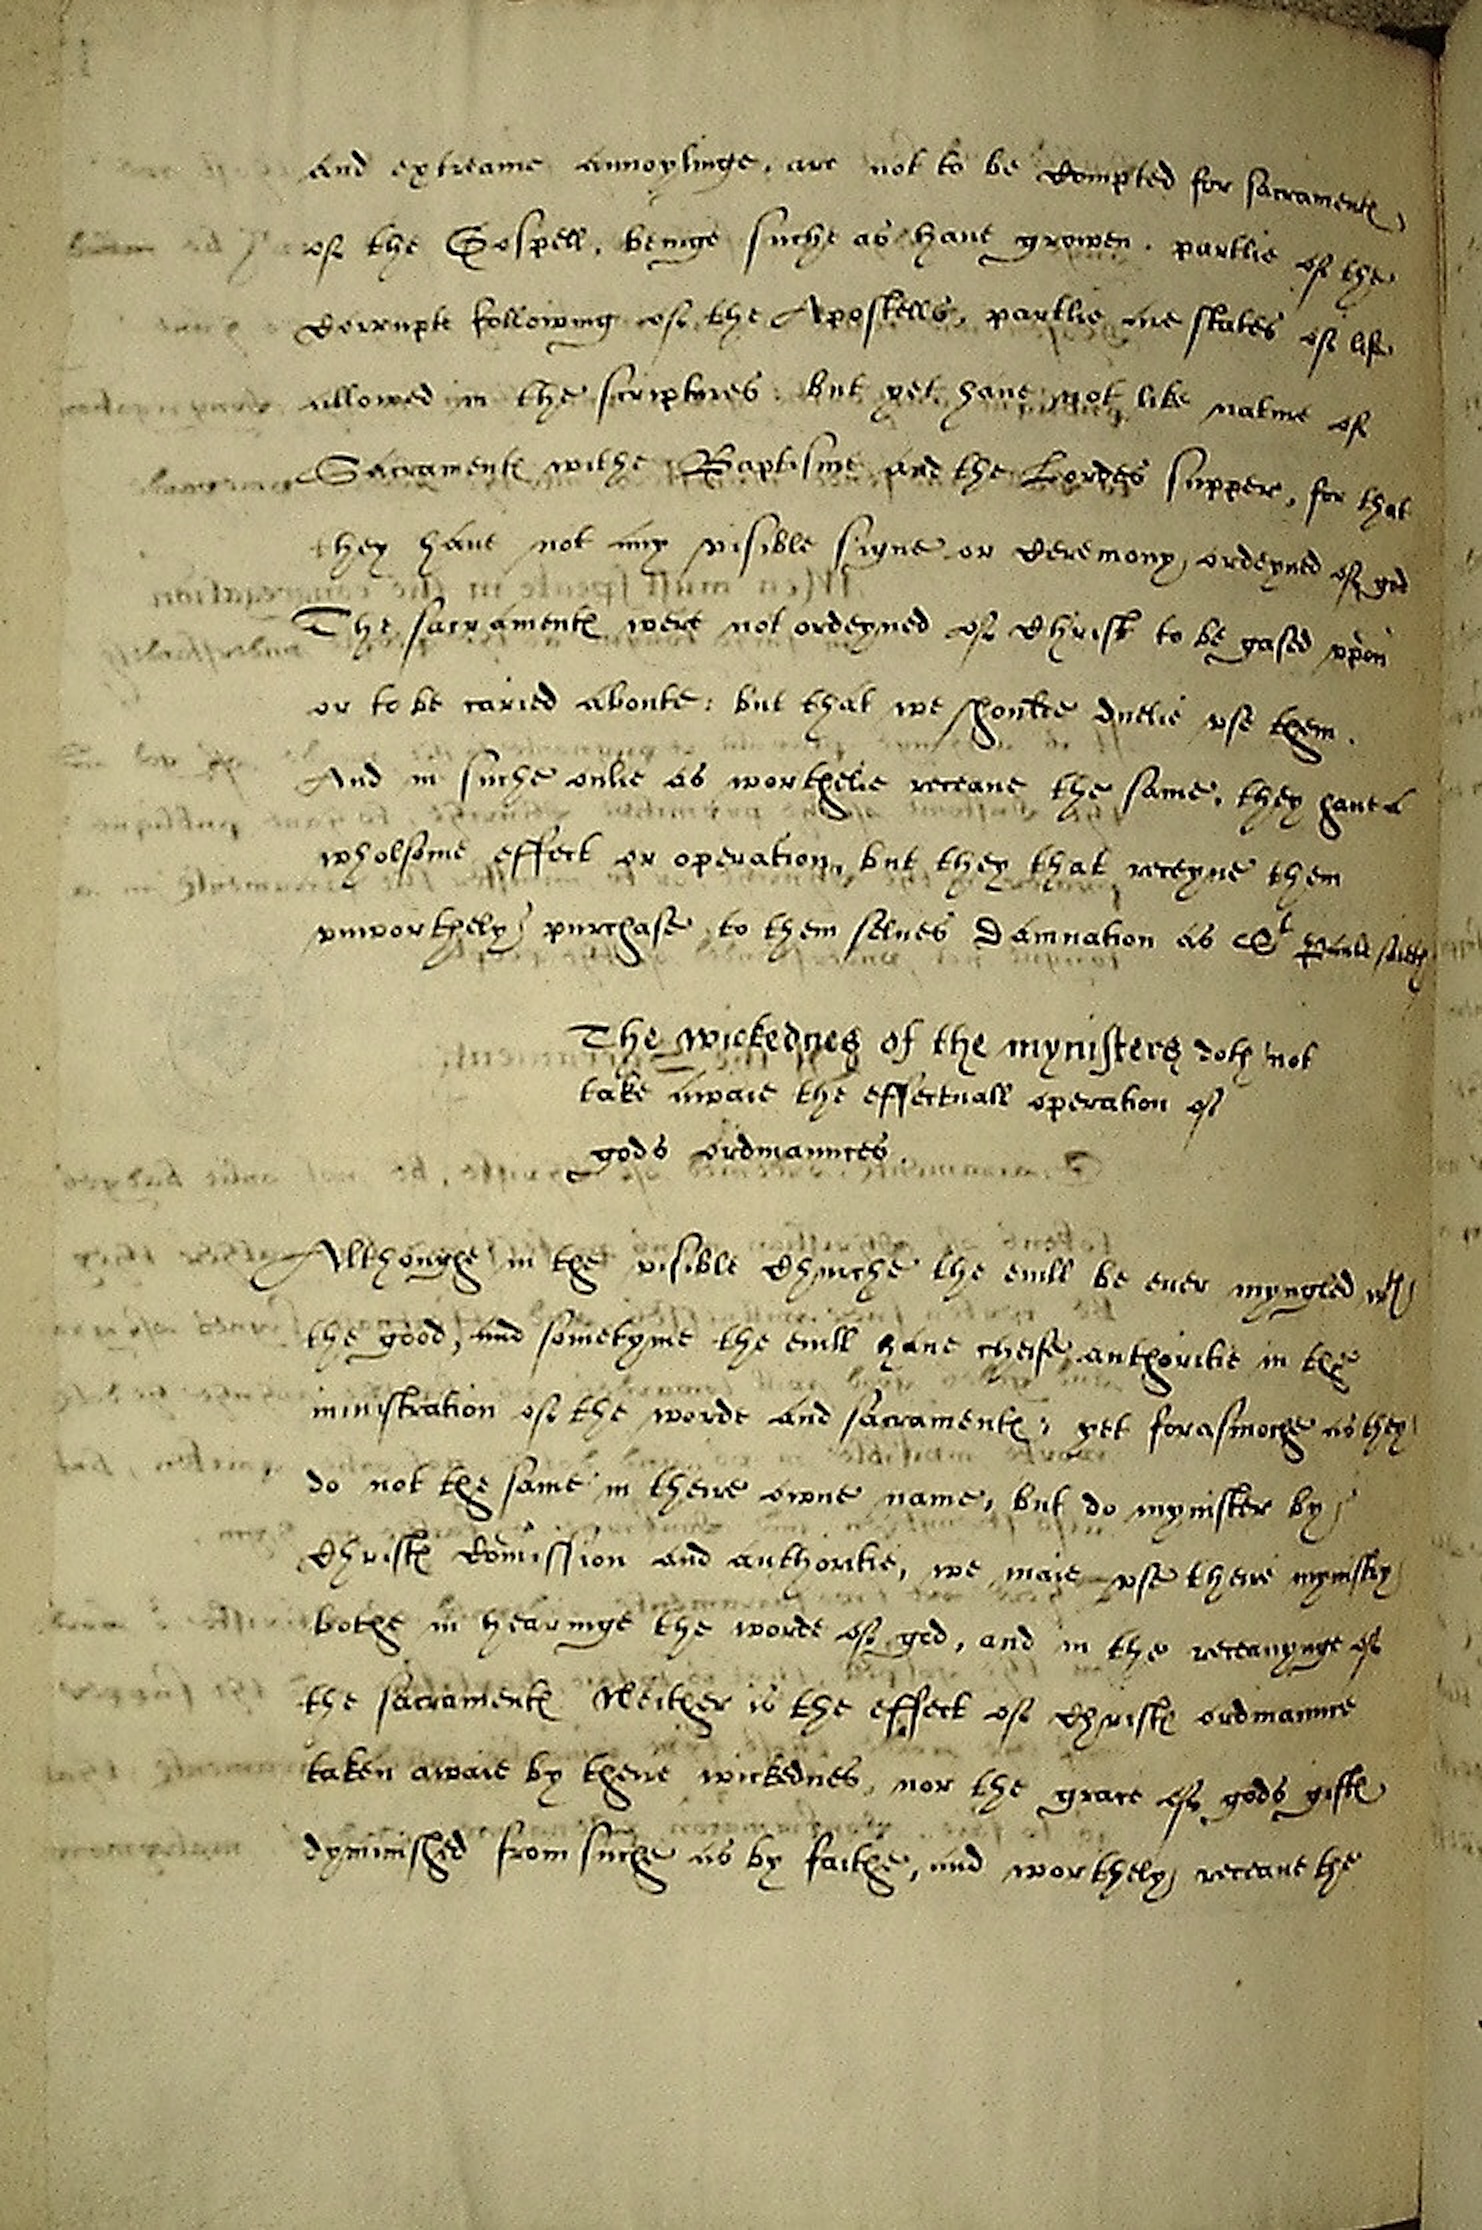 and extreame annoylinge, are not to be compted for sacramentes
of the Gospell, beinge suche as have growen, partlie of the
corrupte following of the Apostells, partlie are states of life
allowed in the scriptures: but yet have not like nature of
Sacramentes withe Baptisme and the Lordes supper, for that
they have not any visible signe or ceremony, ordeyned of god
The sacramentes were not ordeyned of Christ to be gased vpon
or to be caried aboute: but that we shoulde duelie vse them.
And in suche onlie as worthelie receaue the same, they haue a
wholsome effect or operation, but they that receyue them
vnworthely purchase to them selues Damnation as St Paule saieth
The wickednes of the mynisters doth not
take awaie the effectuall operation of
gods ordinaunces.
Althoughe in the visible Churche the euill be euer myngled wth
the good, and sometyme the euill haue cheife authoritie in the
ministration of the worde and sacramentes: yet forasmoche as they
do not the same in theire owne name, but do mynister by
Christes comission and authoritie, we maie vse theire mynistry
bothe in hearinge the worde of god, and in the receauynge of
the sacramentes Neither is the effect of Christes ordinaunce
taken awaie by theire wickednes, nor the grace of gods giftes
dyminished from suche as by faithe, and worthely receaue the